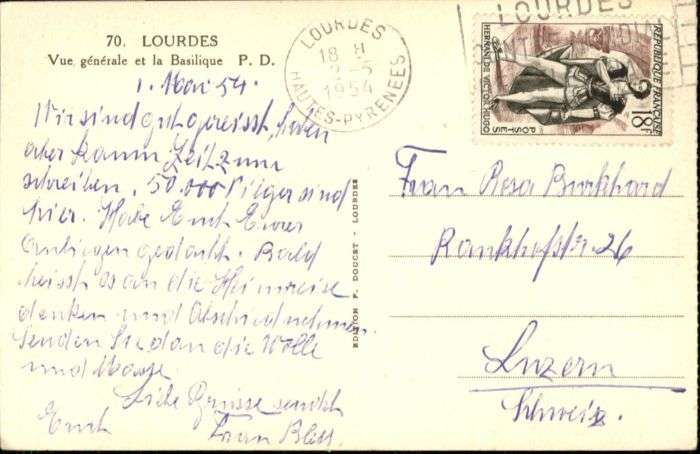 70. LOURDES
Vue générale et la Basilique P. D.
1. Mai 54.
Wir sind gut gereisst, haben
aber kaum Zeit zum
schreiben. 50.000 Pilger sind
hier. Habe Euch Eurer
Anliegen gedacht. Bald
heisst es an die Heimreise
denken und Abschied nehmen.
Senden Sie dan die Wolle
und Masse
Liebe Grüsse sendet
Euch Frau
EDITION P. DOUCET - LOURDES
LOURDES
18 H
2-5
1954
HAUTES-PYRENEES
LOURDES
REPUBLIQUE FRANÇAISE
18F
POSTES
HERNANI DE VICTOR HUGO
Frau Rosa Burkhard
26
Luzern
Schweiz.